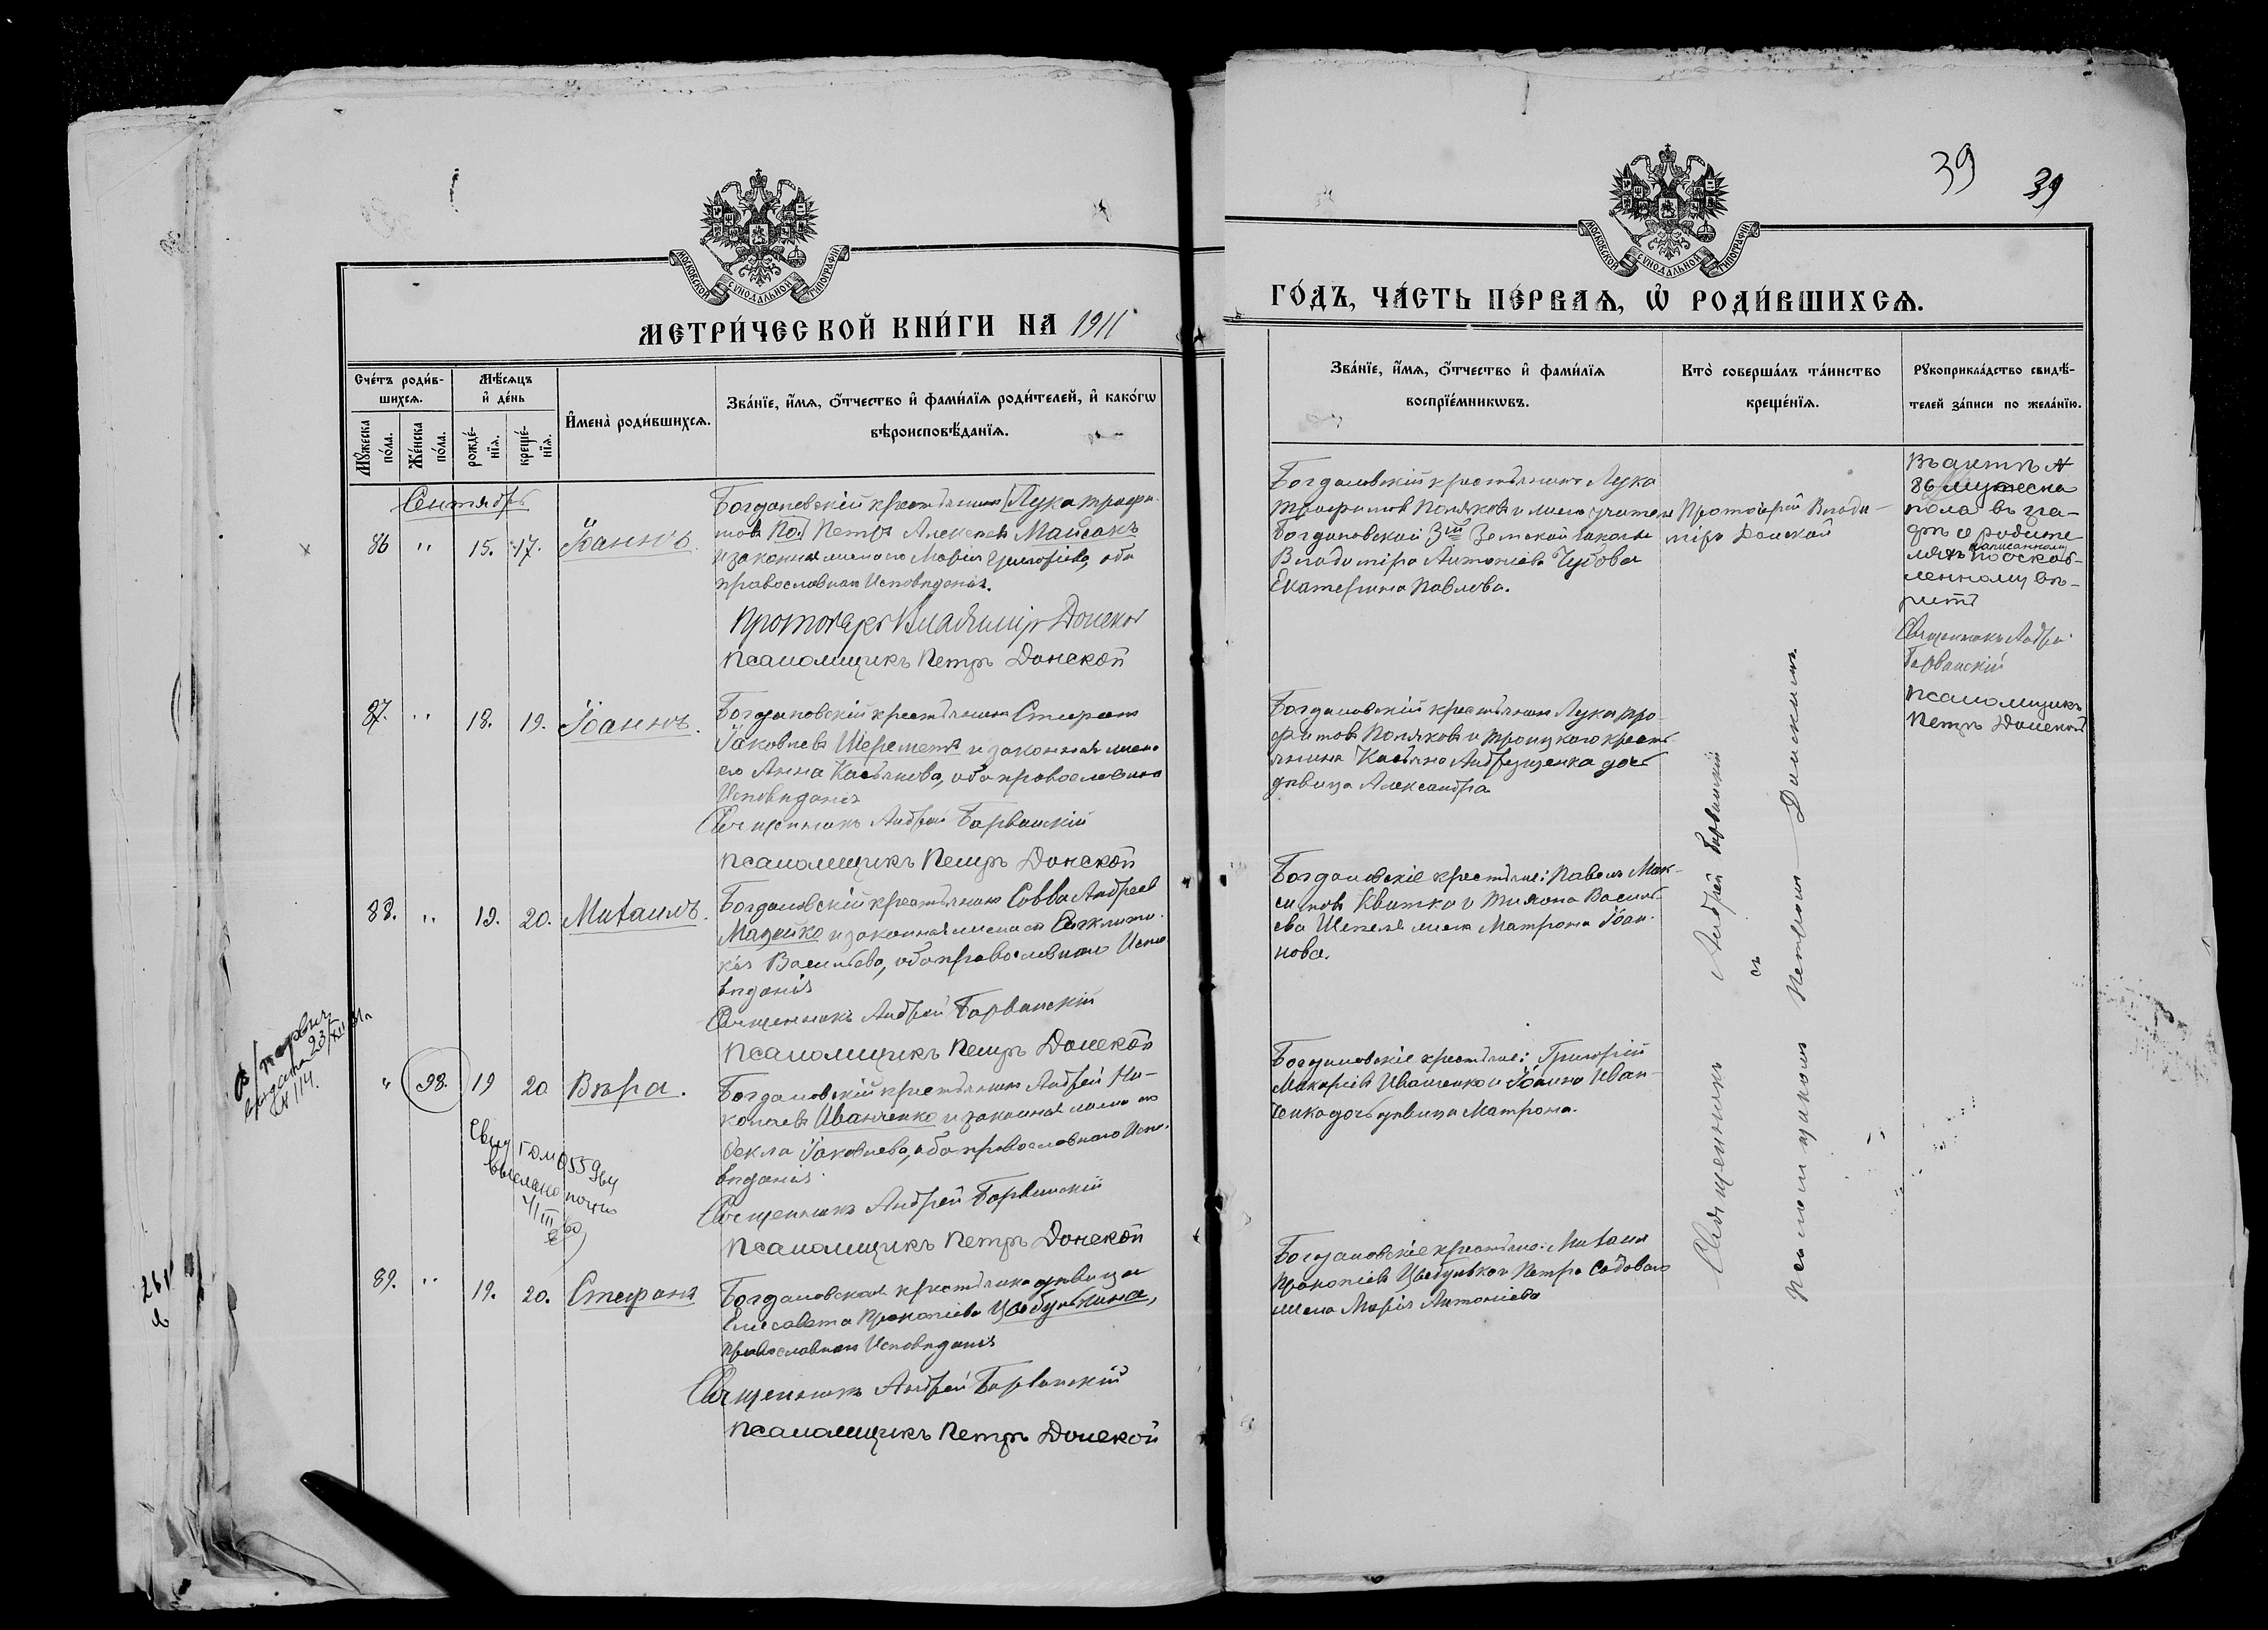 39
39
МОСКОВСКОЙ СѴНОДАЛЬНОЙ ТИПОГРАФІИ
МЕТРИ́ЧЕСКОЙ КНИ́ГИ НА 1911
Сче́тъ роди́в-
шихсѧ.
Мѣ́сѧцъ
и҆ де́нь
Мꙋ́жеска
по́ла.
Же́нска
по́ла.
рожде́-
нїѧ.
креще́-
нїѧ.
И҆мена̀ роди́вшихсѧ.
Зва́нїе, и҆́мѧ, ѻ҆́тчество и҆ фами́лїѧ роди́телей, и҆ како́гѡ
вѣроисповѣ́данїѧ.
Сентябрь
86 " 15. 17. Іоаннъ.
Богдановскій крестьянинъ [Лука Трофи-
мовъ По] Петръ Алексѣевъ Майсакъ
и законная жена его Марія Григоріева, оба
православнаго Исповѣданія.
Протоіерей Владиміръ Донской
Псаломщикъ Петръ Донской
87. " 18. 19. Іоаннъ.
Богдановскій крестьянинъ Стефанъ
Іаковлевъ Шереметъ и законная жена
его Анна Касьянова, оба православнаго
Исповѣданія
Священникъ Андрей Барвинскій
Псаломщикъ Петръ Донской
88. " 19. 20. Михаилъ.
Богдановскій крестьянинъ Савва Андреевъ
Мазейко и законная жена его Сигклити-
кія Васильева, оба православнаго Испо-
вѣданія
Священникъ Андрей Барвинскій
Псаломщикъ Петръ Донской
" 98. 19 20 Вѣра.
Богдановскій крестьянинъ Андрей Ни-
колаевъ Иванченко и законная жена его
Ѳекла Іаковлева, оба православнаго Испо-
вѣданія
Священникъ Андрей Барвинскій
Псаломщикъ Петръ Донской
выслано почтой
89. " 19. 20. Стефанъ
Богдановская крестьянка дѣвица
Елисавета Прокопіева Цыбулькина,
православнаго Исповѣданія
Священникъ Андрей Барвинскій
Псаломщикъ Петръ Донской
МОСКОВСКОЙ СѴНОДАЛЬНОЙ ТИПОГРАФІИ
ГО́ДЪ, ЧА́СТЬ ПЕ́РВАѦ, Ѽ РОДИ́ВШИХСѦ.
Зва́нїе, и҆́мѧ, ѻ҆́тчество и҆ фами́лїѧ
воспрїе́мникѡвъ.
Кто̀ соверша́лъ та́инство
креще́нїѧ.
Рꙋкоприкла́дство свидѣ́-
телей за́писи по жела́нїю.
Богдановскій крестьянинъ Лука
Трофимовъ Поляковъ и жена учителя
Богдановской 3ей Земской школы
Владиміра Антоніева Чубова
Екатерина Павлова.
Протоіерей Влади-
міръ Донской
Въ актѣ №
86 мужеска
пола въ гра-
фѣ о родите-
ляхъ написанному
по оскоб-
ленному вѣ-
рить
Священникъ Андрей
Барвинскій
Псаломщикъ
Петръ Донской
Богдановскій крестьянинъ Лука Тро-
фимовъ Поляковъ и Троицкаго кресть-
янина Касьяна Андрущенка дочь
дѣвица Александра
Богдановскіе крестьяне: Павелъ Мак-
симовъ Квитка и Тихона Василь-
ева Шепеля жена Матрона Іоан-
нова.
Богдановскіе крестьяне: Григорій
Макаріевъ Иващенко и Іоанна Иван-
ченка дочь дѣвица Матрона.
Богдановскіе крестьяне: Михаилъ
Прокопіевъ Цыбулька и Петра Садоваго
жена Марія Антоніева
Священникъ Андрей Барвинскій
съ
Псаломщикомъ Петромъ Донскимъ